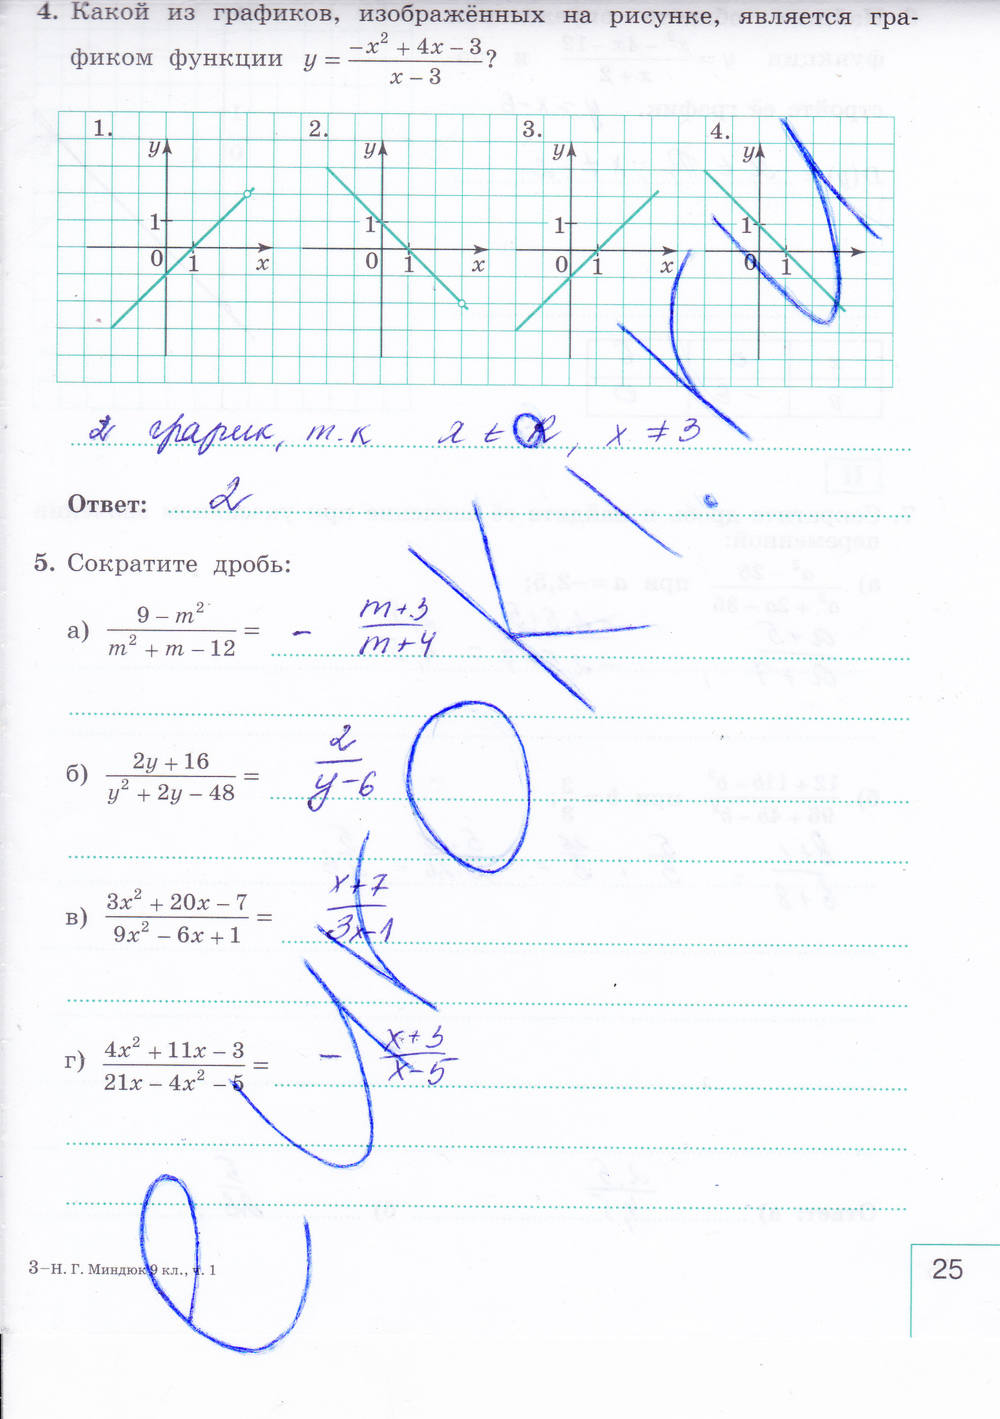 4. Какой из графиков, изображённых на рисунке, является гра-
фиком функции y = (−x² + 4x − 3)/(x − 3)?
1. 2. 3. 4.
y y y y
1 1 1 1
0 1 x 0 1 x 0 1 x 0 1
2 график, т.к x ∈ R, x ≠ 3
Ответ: 2
5. Сократите дробь:
а) (9 − m²)/(m² + m − 12) = − (m+3)/(m+4)
б) (2y + 16)/(y² + 2y − 48) = 2/(y−6)
в) (3x² + 20x − 7)/(9x² − 6x + 1) = (x+7)/(3x−1)
г) (4x² + 11x − 3)/(21x − 4x² − 5) = − (x+3)/(x−5)
3–Н. Г. Миндюк 9 кл., ч. 1
25